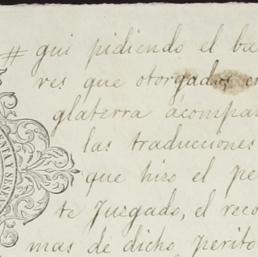 # qui pidiendo el ba
res que otorgadas en
glaterra acompañ
las traducciones
que hizo el pe
te Juzgado, el reco
mas de dicho perito
ENTA Y SES